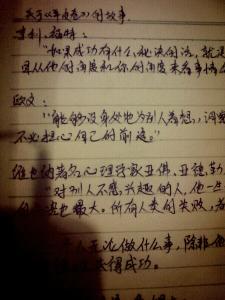 关于《羊皮卷》的故事
亨利.福特:
"如果成功有什么秘诀的话,就是
且从他的角度和你的角度来看事情
欧文:
"能够设身处地为别人着想,
不必担心自己的前途。"
维也纳著名心理学家亚佛.亚德勒
"对别人不感兴趣的人,他一生
也最大。所有人类的失败,
人无论做什么事,除非他
获得成功。